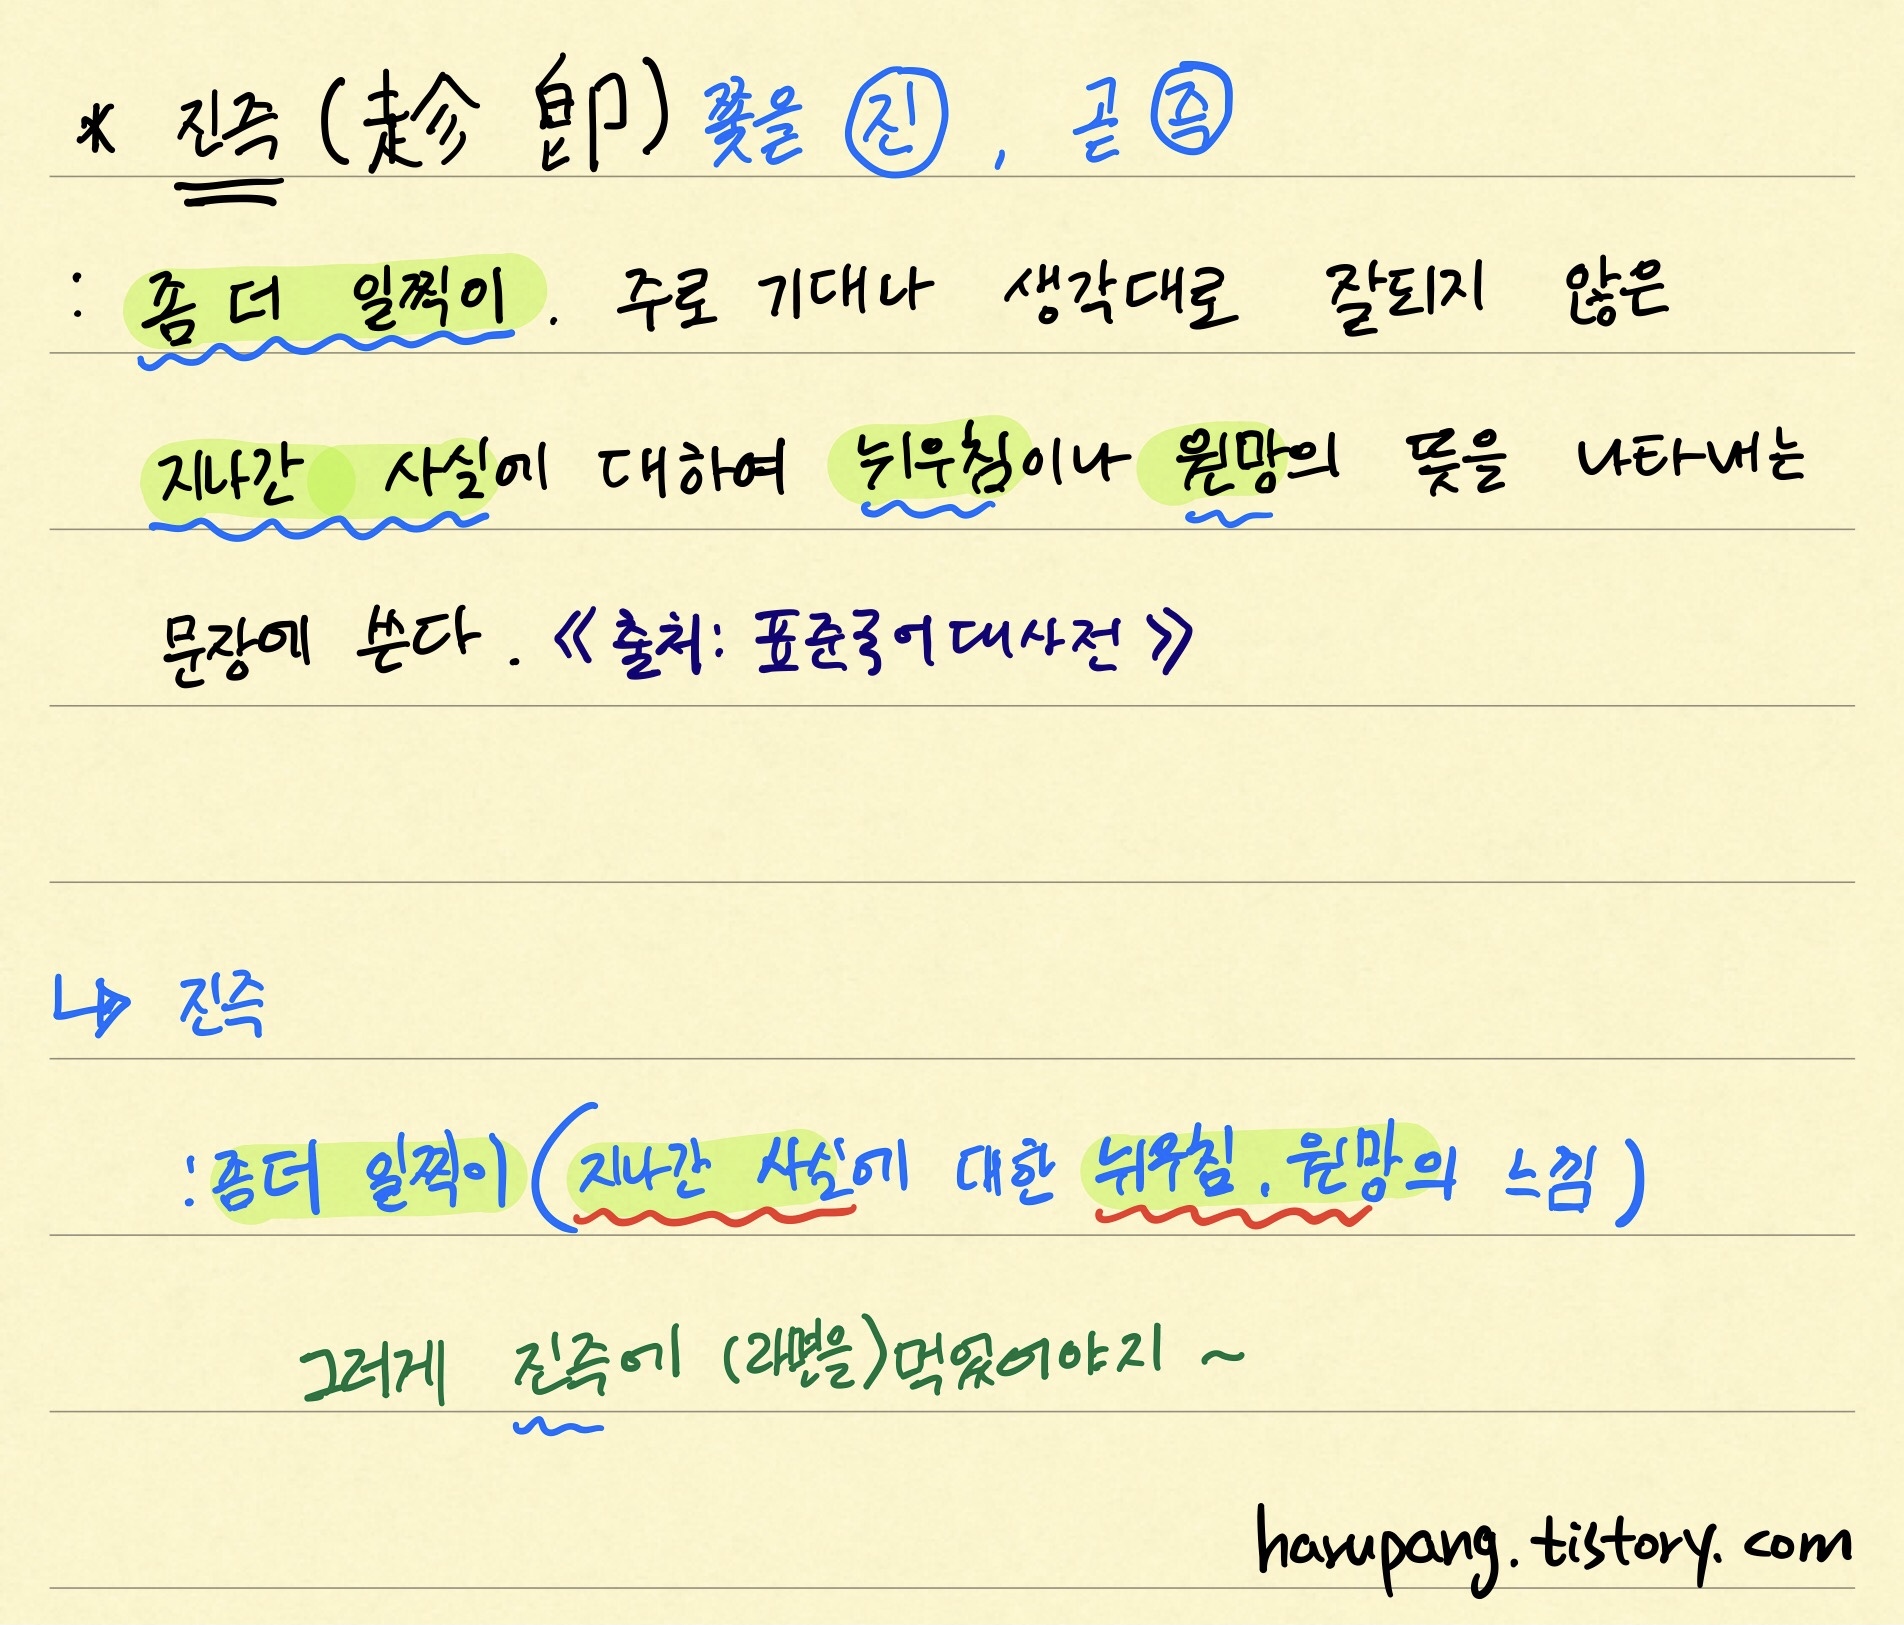 * 진즉 (趁 卽) 쫓을 진, 곧 즉
: 좀 더 일찍이. 주로 기대나 생각대로 잘되지 않은
지나간 사실에 대하여 뉘우침이나 원망의 뜻을 나타내는
문장에 쓴다. 《출처: 표준국어대사전》
↳ 진즉
: 좀더 일찍이 (지나간 사실에 대한 뉘우침, 원망의 느낌)
그러게 진즉에 (라면을) 먹었어야지 ~
harupang.tistory.com